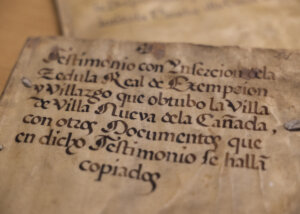 Testimonio con Ynsercion dela
Zedula Real de Exempcion
y Villazgo que obtubo la Villa
de Villa Nueva dela Cañada,
con otros Documentos que
en dicho Testimonio se hallã
copiados